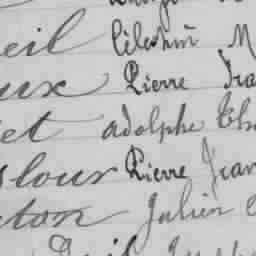 eil Célestin M
eux Pierre Fra
et adolphe Th
slour Pierre Jean
ton Julien